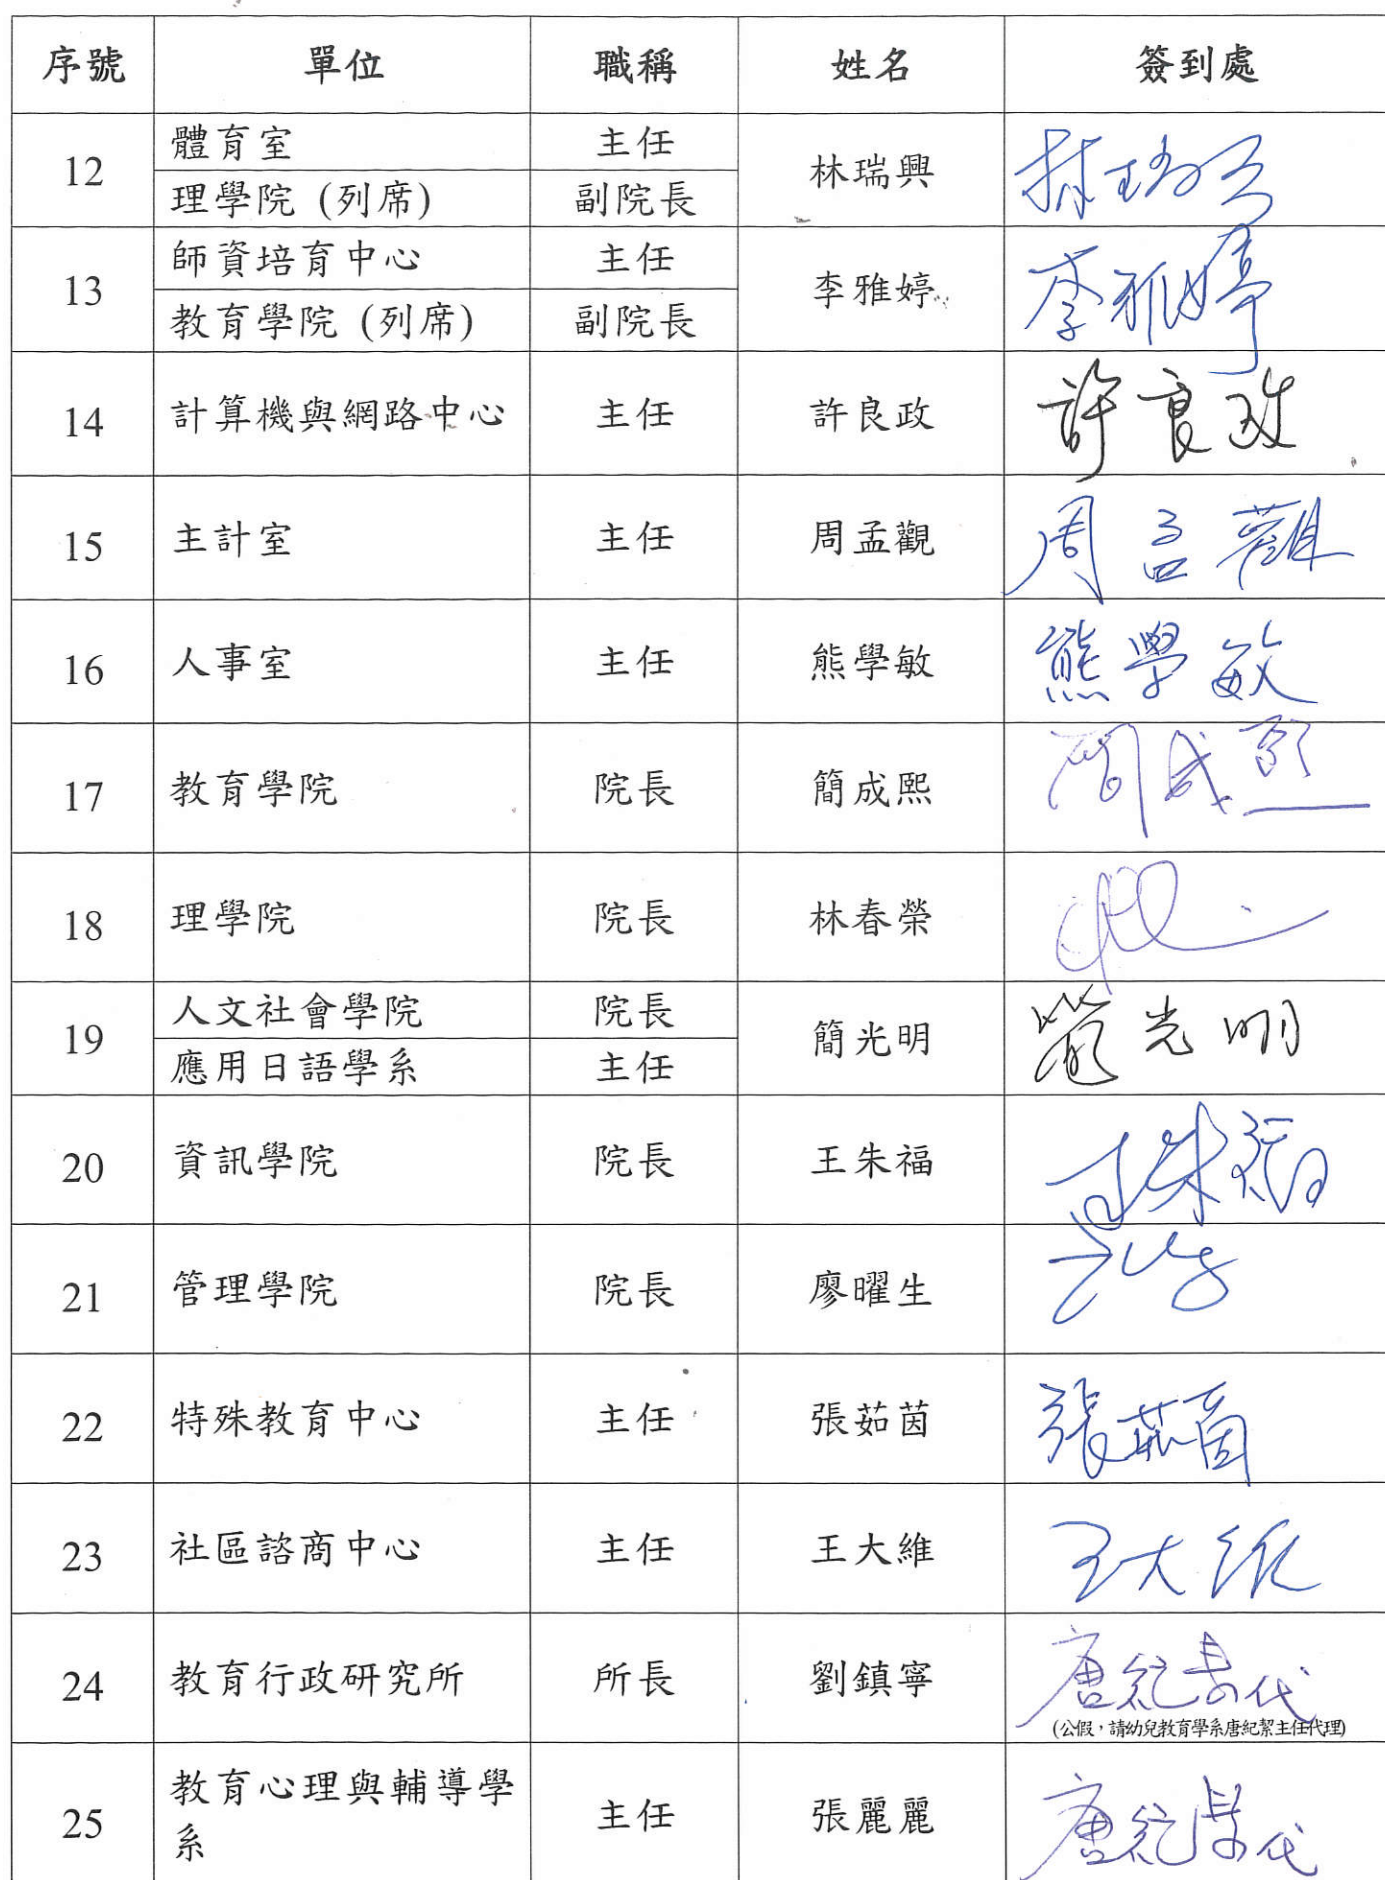 序號 單位 職稱 姓名 簽到處
12 體育室 主任 林瑞興 林瑞興
理學院 (列席) 副院長
13 師資培育中心 主任 李雅婷 李雅婷
教育學院 (列席) 副院長
14 計算機與網路中心 主任 許良政 許良政
15 主計室 主任 周孟觀 周孟觀
16 人事室 主任 熊學敏 熊學敏
17 教育學院 院長 簡成熙 簡成熙
18 理學院 院長 林春榮
19 人文社會學院 院長 簡光明 簡光明
應用日語學系 主任
20 資訊學院 院長 王朱福 王朱福
21 管理學院 院長 廖曜生
22 特殊教育中心 主任 張茹茵 張茹茵
23 社區諮商中心 主任 王大維 王大維
24 教育行政研究所 所長 劉鎮寧 唐紀絜代
(公假，請幼兒教育學系唐紀絜主任代理)
25 教育心理與輔導學 主任 張麗麗 唐紀絜代
系